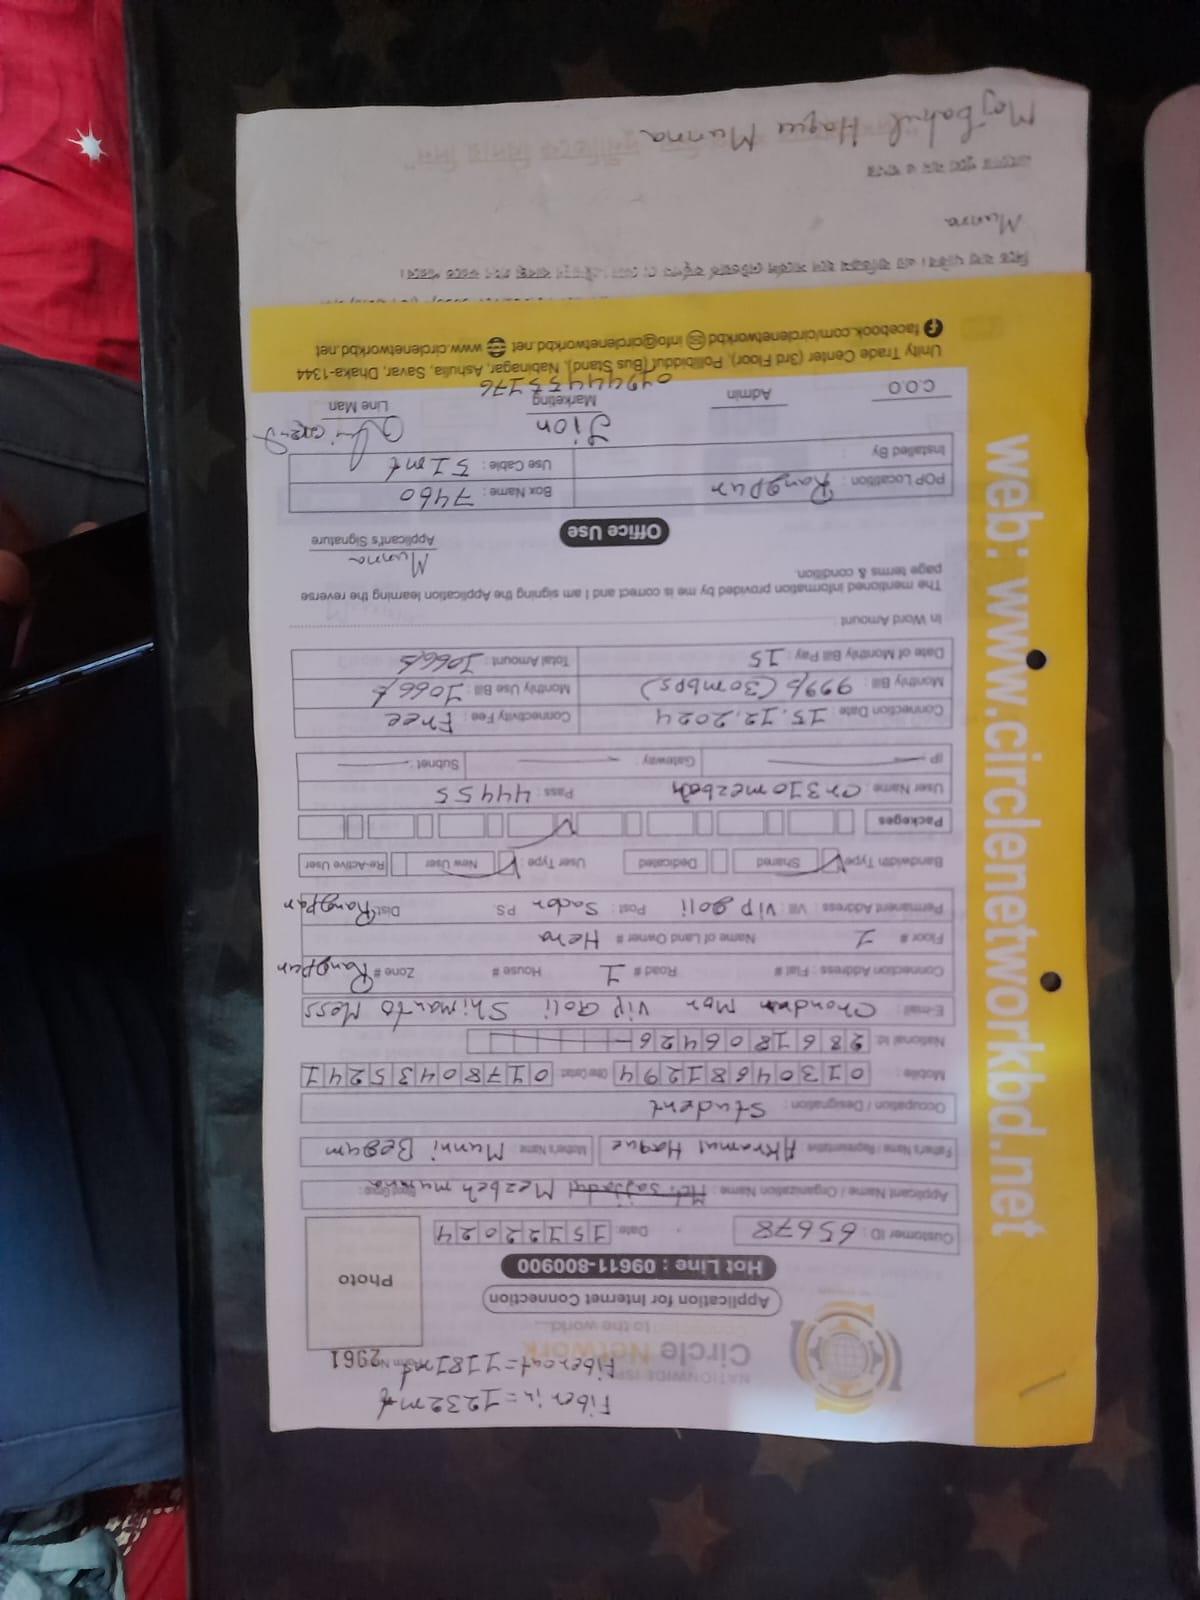 Fiber in = 1232 mt
Fiber out = 1181 mt
NATIONWIDE ISP
Circle Network
to the world...
Form No 2961
Application for Internet Connection
Hot Line : 09611-800900
Photo
Customer ID : 65678 Date: 15122024
Applicant Name / Organization Name : Mezbeh munna
Father's Name / Representative AKramul Haque Mother's Name : Munni Begum
Occupation / Designation : Student
Mobile : 01304681294 Other Contact 01780435241
National Id: 2861806426
E-mail : Chondan Mor Vip Goli Shimanto Mess
Connection Address : Flat # Road # 1 House # Zone # Rangpur
Floor # 1 Name of Land Owner # Hera
Permanent Address : Vill : Vip goli Post : Sador P.S. Dist: Rangpur
Bandwidth Type Shared Dedicated User Type : New User Re-Active User
Packeges
User Name : Cn310mezbah Pass : 44455
IP Gateway : Subnet :
Connection Date : 15.12.2024 Connectivity Fee : Free
Monthly Bill : 999/- (30mbps) Monthly Use Bill : 1066/-
Date of Monthly Bill Pay : 15 Total Amount : 1066/-
In Word Amount :
The mentioned information provided by me is correct and I am signing the Application learning the reverse
page terms & condition.
Munna
Applicant's Signature
Office Use
POP Locatition : Rangpur Box Name : 7460
Installed By : Use Cable : 51mt
Jion
C.O.O Admin Marketing Line Man
Unity Trade Center (3rd Floor), Pollibiddut (Bus Stand), Nabinagar, Ashulia, Savar, Dhaka-1344
facebook.com/circlenetworkbd info@circlenetworkbd.net www.circlenetworkbd.net
web: www.circlenetworkbd.net
Munna
Mojbahul Haque Munna